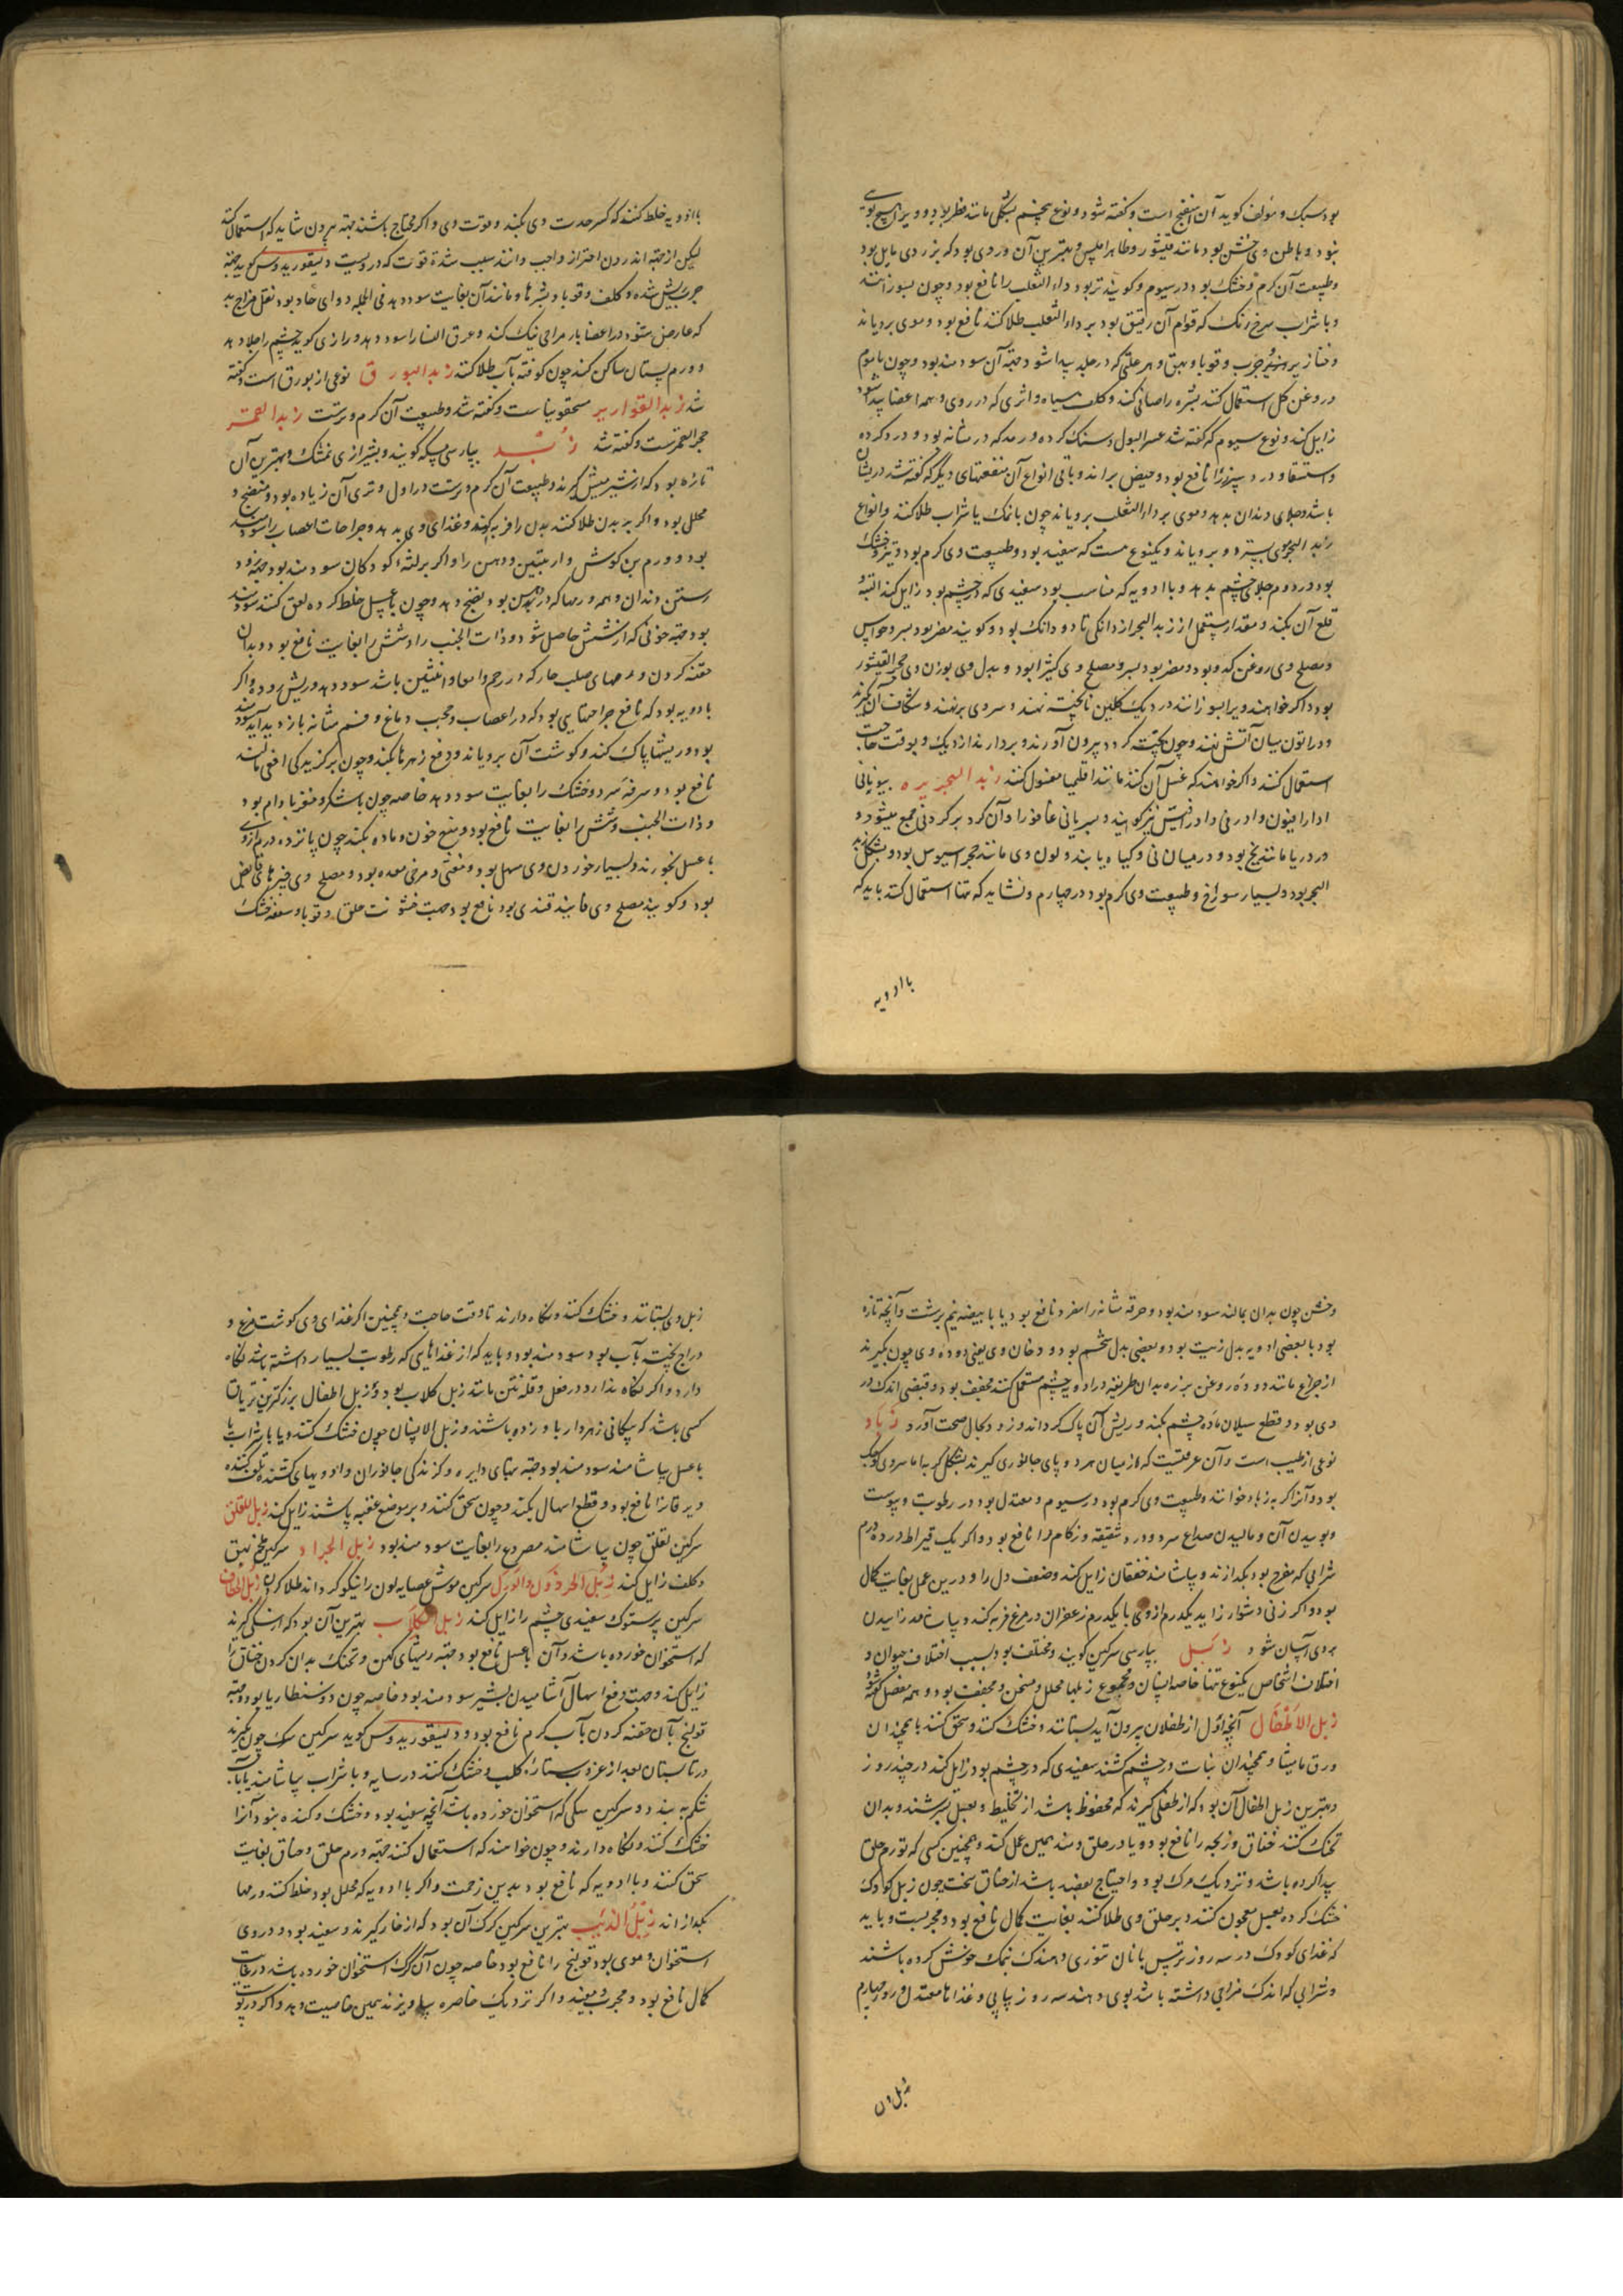 بود سبک و مؤلف گوید آن اسفنج است و گفته شود و نوع پنجم بشکل مانند فطر بود و ویرا هیچ بوی
نبود و باطن وی خشن بود مانند قیشور و ظاهر املس و بهترین آن وردی بود که بزردی مایل بود
و طبیعت آن گرم و خشک بود در سیوم و گویند تر بود داء الثعلب را نافع بود و چون بسوزانند
و با شراب سرخ رنگ که قوام آن رقیق بود بر داء الثعلب طلا کنند نافع بود و موی برویاند
و خنازیر و جرب و قوبا و بهق و هر علتی که در جلد پیدا شود جهة آن سودمند بود و چون با موم
و روغن کل استعمال کنند بشره را صافی کند و کلف سیاه و اثری که در روی و همه اعضا پیدا شود
زایل کند و نوع سیوم که گفته شد عسر البول و سنگ گرده و رمد که در مثانه بود و درد گرده
و استسقا و درد سپرز را نافع بود و حیض براند و باقی انواع آن منفعتهای دیگر که گفته شد در یشان
باشد و جلای دندان بدهد و موی بر داء الثعلب برویاند چون با نمک یا شراب طلا کنند و انواع
زبد البحر موی بسترد و برویاند و یکنوع هست که سفید بود و طبیعت وی گرم بود و تر و خشک
بود در دوم جلای چشم بدهد و با ادویه که مناسب بود سفیدی که در چشم بود زایل کند البته و
قلع آن بکند و مقدار مستعمل از زبد البحر از دانکی تا دو دانک بود و گویند مضر بود بسر و حواس
و مصلح وی روغن کدو بود و مضر بود بسر و مصلح وی کثیرا بود و بدل وی بوزن وی حجر القیشور
بود و اگر خواهند ویرا بسوزانند در دیک گلین ناپخته نهند و سر وی بر نهند و شکاف آن گیرند
و در اتون میان آتش نهند و چون پخته گردد بیرون آورند و بردارند از دیک و بوقت حاجت
استعمال کنند و اگر خواهند که غسل آن کنند مانند اقلیمیا مغسول کنند زبد البحیره بیونانی
ادارافیون و ادرفی و ادرفیس نیز گویند و بسریانی عاقورا و آن گرد بر گرد نی جمع میشود و
در دریا مانند یخ بود و در میان نی و گیاه یابند و لون وی مانند حجر اسیوس بود و بشکل زبد
البحر بود و بسیار سوراخ و طبیعت وی گرم بود در چهارم و نشاید که تنها استعمال کنند باید که
با ادویه
با ادویه خلط کنند که کسر حدت وی بکند و قوت وی و اگر محتاج باشند جهة بیرون شاید که استعمال کنند
لیکن از جهة اندرون احتراز واجب دانند بسبب شدة قوت که درویست دیسقوریدوس گوید جهة
جرب ریش شده و کلف و قوبا و بثرها و مانند آن بغایت سود دهد فی الجمله دوای حاد بود نقل مزاج بد
که عارض شود در اعضا بار مزاجی نیک کند و عرق النسا را سود دهد و رازی گوید چشم را جلا دهد
و ورم پستان ساکن کند چون کوفته بآب طلا کنند زبد البورق نوعی از بورق است و گفته
شد زبد القواریر مسحقونیاست و گفته شد و طبیعت آن گرم و ترست زبد القمر
حجر القمرست و گفته شد زُبْد بپارسی مسکه گویند و بشیرازی نمشک و بهترین آن
تازه بود که از شیر میش گیرند و طبیعت آن گرم و ترست در اول و تری آن زیاده بود و منضج و
محلل بود و اگر بر بدن طلا کنند بدن را فربه کند و غذای وی بدهد و جراحات اعصاب را سود
بود و ورم بن گوش و اربیتین و دهن را و اگر بر لثه کودکان سودمند بود جهة زود
رستن دندان و همه ورمها که در دهن بود نضج دهد و چون با عسل خلط کرده لعق کنند سودمند
بود جهة خونی که از شش حاصل شود و ذات الجنب را و شش را بغایت نافع بود و بدان
حقنه کردن ورمهای صلب حار که در رحم و امعا و انثیین باشد سود دهد و ریش روده و اگر
با ادویه بود که نافع جراحتهایی بود که در اعصاب و حجب دماغ و فم مثانه باز دید آید سودمند
بود و ریشها پاک کند و گوشت آن برویاند و دفع زهرها بکند و چون بر گزیدگی افعی مالند
نافع بود و سرفه سرد و خشک را بغایت سود دهد خاصه چون با شکر و مغز بادام بود
و ذات الجنب و شش را بغایت نافع بود و منع خون و ماده بکند چون پانزده درم از وی
با عسل بخورند و بسیار خوردن وی مسهل بود و مغثی و مرخی معده بود و مصلح وی چیزهای قابض
بود و گویند مصلح وی فانید قندی بود نافع بود جهت خشونت حلق و قوبا و سعفه خشک
و خشن چون بدان بمالند سودمند بود و حرقه مثانه را مفرد نافع بود یا با بیضه نیم برشت و آنچه تازه
بود با بعضی ادویه بدل زیت بود و بعضی بدل شحم بود و دخان وی یعنی دوده وی چون بگیرند
از چراغ مانند دوده روغن بزر بدان طریقه در ادویه چشم مستعمل کنند مجفف بود و قبضی اندک در
وی بود و قطع سیلان ماده چشم بکند و ریش آن پاک گرداند و زود بحال صحت آورد زباد
نوعی از طیب است و آن عرقیست که از میان هر دو پای جانوری گیرند بشکل گربه اما سر وی کوچک
بود و آنرا گربه زباد خوانند و طبیعت وی گرم بود در سیوم و معتدل بود در رطوبت و یبوست
و بوییدن آن و مالیدن صداع سرد و درد شقیقه و زکام را نافع بود و اگر یک قیراط در ده درم
شرابی که مفرح بود بگدازند و بیاشامند خفقان زایل کند و ضعف دل را و درین عمل بغایت کمال
بود و اگر زنی دشوار زاید یکدرم از وی با یکدرم زعفران در مرغ فربه کند و بیاشامد زاییدن
بر وی آسان شود زبل بپارسی سرگین گویند و مختلف بود بسبب اختلاف حیوان و
اختلاف اشخاص یکنوع تنها خاصه انسان و مجموع زبلها محلل و مسخن و مجفف بود و همه مفصل گفته شود
زبل الاطفال آنچه اول از طفلان بیرون آید بستانند و خشک کنند و سحق کنند با همچندان
ورق مامیثا و همچندان نبات و در چشم کشند سفیدی که در چشم بود زایل کند در چند روز
و بهترین زبل اطفال آن بود که از طفلی گیرند که محفوظ باشد از تخلیط و بعسل بسرشند و بدان
تحنک کنند خناق و ذبحه را نافع بود و یا در حلق دمند همین عمل کند و همچنین کسی که تورم حلق
پیدا کرده باشد و نزدیک مرگ بود و احتیاج بفصد باشد از خناق سخت چون زبل کودک
خشک کرده بعسل معجون کنند و بر حلق وی طلا کنند بغایت کمال نافع بود و مجربست و باید
که غذای کودک در سه روز ترمس با نان تنوری دهند که نمک خوش کرده باشند
و شرابی که اندک مزاجی داشته باشد بوی دهند سه روز پیاپی و غذاها معتدل و روز چهارم
زبل وی
زبل وی بستانند و خشک کنند و نگاه دارند تا وقت حاجت و همچنین اگر غذای وی گوشت مرغ و
دراج پخته بآب بود سودمند بود و باید که از غذاهایی که رطوبت بسیار داشته باشد نگاه
دارد و اگر نگاه ندارد در فعل و قلة نتن مانند زبل کلاب بود و زبل اطفال بزرگترین تریاق
کسی باشد که پیکانی زهردار باو زده باشند و زبل الانسان چون خشک کنند و یا با شراب یا
با عسل بیاشامند سودمند بود جهة تبهای دایره و گزندگی جانوران و ادویهای کشنده
و یرقانرا نافع بود و قطع اسهال بکند و چون سحق کنند و بر موضع عقبه پاشند زایل کند زبل اللقلق
سرگین لقلق چون بیاشامند مصروع را بغایت سودمند بود زبل الجراد سرگین ملخ بهق
و کلف زایل کند زبل الحرذون والورل سرگین موش عصایه لون را نیکو گرداند طلا کردن زبل الخطاف
سرگین پرستوک سفیدی چشم را زایل کند زبل الکلاب بهترین آن بود که از سگی گیرند
که استخوان خورده باشد و آن با عسل نافع بود جهة ریشهای کهن و تحنک بدان کردن خناق را
زایل کند و جهت دفع اسهال آشامیدن بشیر سودمند بود خاصه چون دوسنطاریا بود و جهة
قولنج بآن حقنه کردن بآب گرم نافع بود و دیسقوریدوس گوید سرگین سگ چون بگیرند
در تابستان بعد از غروب ستاره کلب و خشک کنند در سایه و با شراب بیاشامند یا بآب
شکم ببندد و سرگین سگی که استخوان خورده باشد آنچه سفید بود و خشک و گنده نبود آنرا
خشک کنند و نگاه دارند و چون خواهند که استعمال کنند جهة ورم حلق و خناق بغایت
سحق کنند و با ادویه که نافع بود بدین زحمت و اگر با ادویه که محلل بود خلط کنند ورمها
بگدازاند زبل الذیب بهترین سرگین گرگ آن بود که از خار گیرند و سفید بود و در وی
استخوان و موی بود قولنج را نافع بود خاصه چون آن گرگ استخوان خورده باشد در غایت
کمال نافع بود و مجرب و مفید و اگر نزدیک خاصره بیاویزند همین خاصیت دهد و اگر در پوست